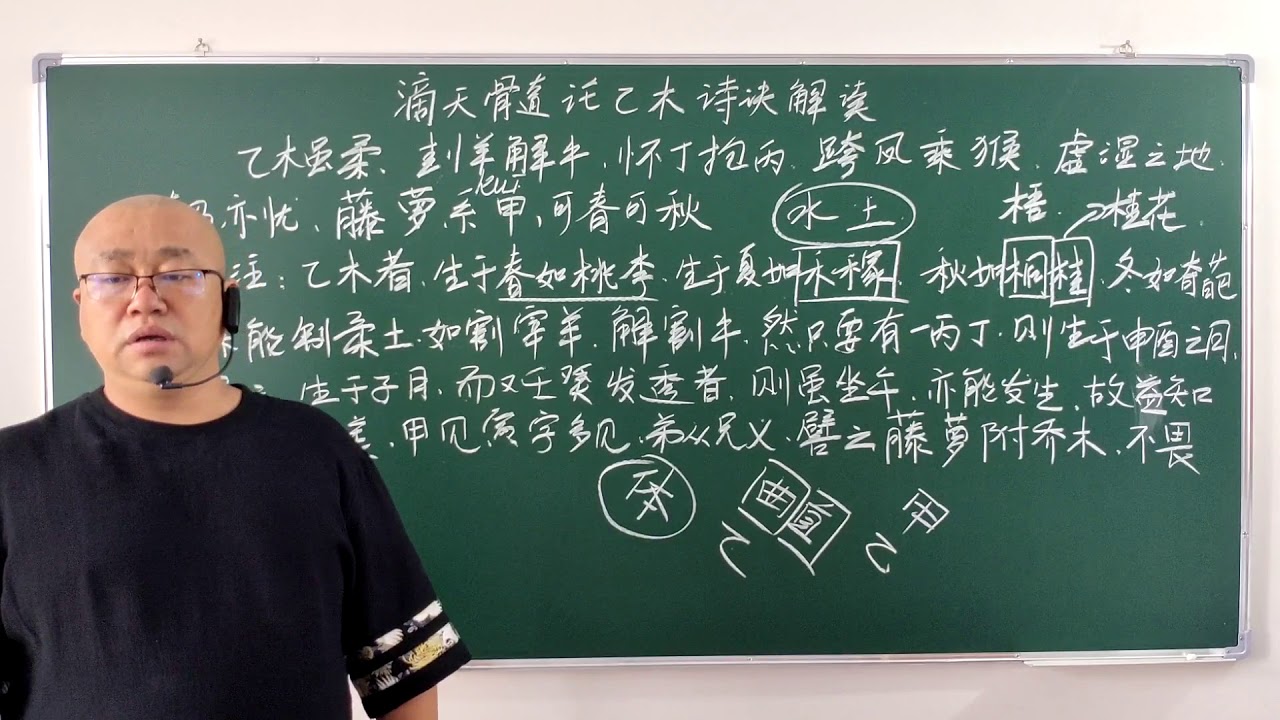 滴天骨道讬乙木诗诀解读
乙木虽柔、刲羊解牛,怀丁抱丙、跨风乘猴、虚湿之地.
亦忧、藤萝系甲、可春可秋
kui
水土
梧 桂花
注:乙木者、生于春如桃李、生于夏如禾稼、秋如桐桂、冬如奇葩
能制柔土、如割宰羊、解割牛、然只要有一丙丁、则生于申酉之月、
生于子月、而又壬癸发透者、则虽坐午、亦能发生、故益知
甲见寅字多见、弟从兄义、譬之藤萝附乔木、不畏
曲直
乙
甲
乙